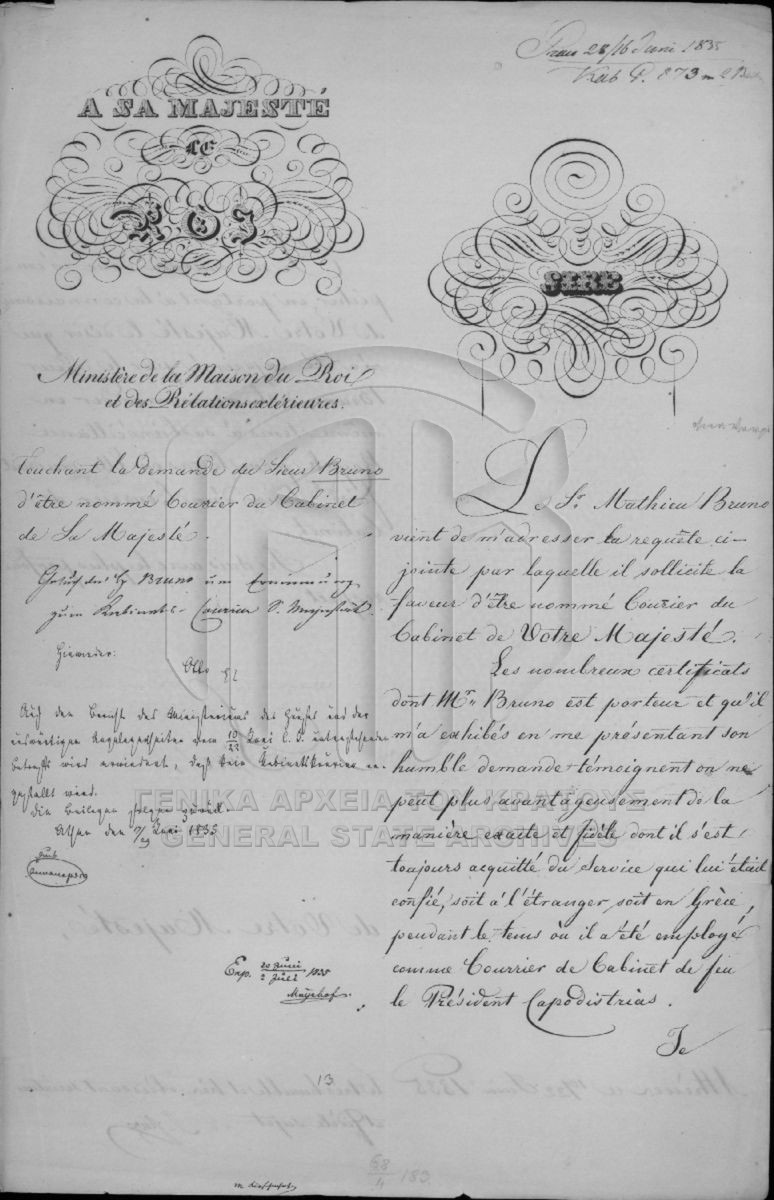 28/16 Juni 1835
A SA MAJESTÉ
LE
ROI
SIRE
Ministère de la Maison du Roi
et des Rélations extérieures.
Touchant la demande du Sieur Bruno
d'être nommé Courier du Cabinet
de Sa Majesté.
Gesuch des H. Bruno um Ernennung
zum Kabinets-Courier S. Majestät.
Hierorder:
Otto
Auf den Bericht des Ministeriums des Hauses und der
auswärtigen Angelegenheiten vom Juni l. J. untenstehenden
Betreffs wird erwiedert, daß kein Kabinetskourier an-
gestellt wird.
Die Beilagen folgen zurück.
Athen den Juni 1835
Exp. 20 Juni / 2 Juli 1835
Le Sr. Mathieu Bruno
vient de m'adresser la requête ci-
jointe par laquelle il sollicite la
faveur d'être nommé Courier du
Cabinet de Votre Majesté.
Les nombreux certificats
dont Mr. Bruno est porteur et qu'il
m'a exhibés en me présentant son
humble demande témoignent on ne
peut plus avantageusement de la
manière exacte et fidèle dont il s'est
toujours acquitté du Service qui lui était
confié, soit à l'étranger soit en Grèce,
pendant le tems où il a été employé
comme Courrier de Cabinet de feu
le Président Capodistrias.
Je
13
68/4 183
ΓΕΝΙΚΑ ΑΡΧΕΙΑ ΤΟΥ ΚΡΑΤΟΥΣ
GENERAL STATE ARCHIVES